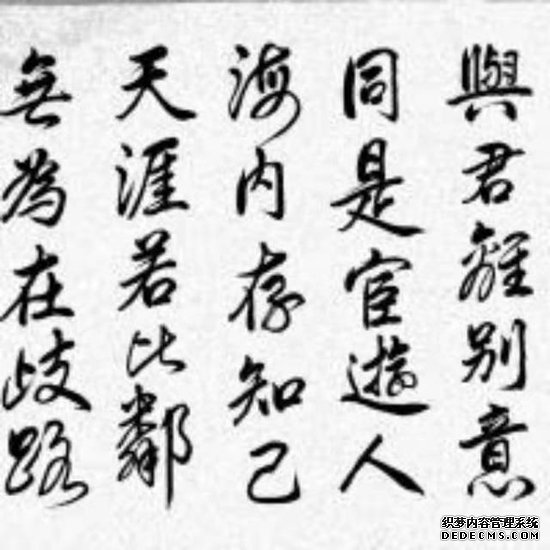 與君離别意
同是宦遊人
海内存知己
天涯若比鄰
無為在歧路
织梦内容管理系统
DEDECMS.COM